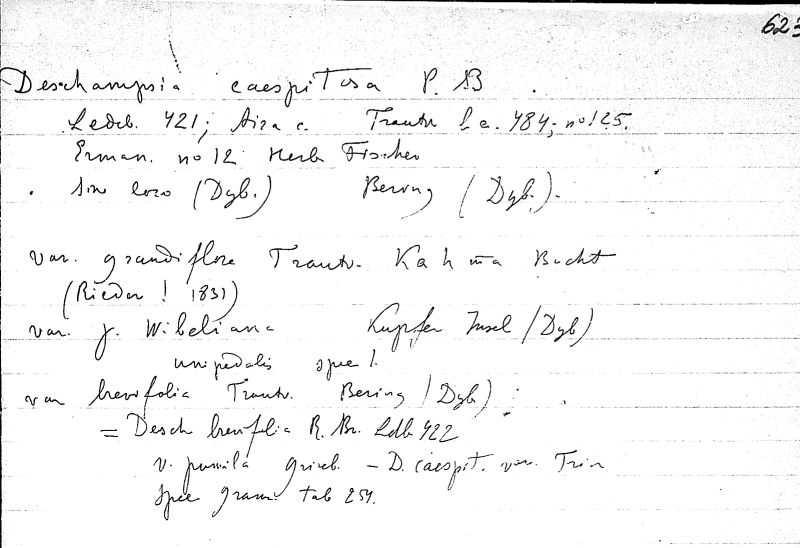 623
Deschampsia caespitosa P. B.
Ledeb. 421; Aira c. Trautv l. c. 484; no 125.
Erman. no 12 Herb Fischer
Sine loco (Dyb.) Bering (Dyb.).
var. grandiflora Trautv. Kahma Bucht
(Rieder ! 1831)
var. γ. Wibeliana Kupfer Insel (Dyb)
unipedalis spec !.
var brevifolia Trautv. Bering (Dyb)
= Desch brevifolia R. Br. Ldb 422
v. pumila Griseb. – D. caespit. var. Trin
Spec gram tab 254.